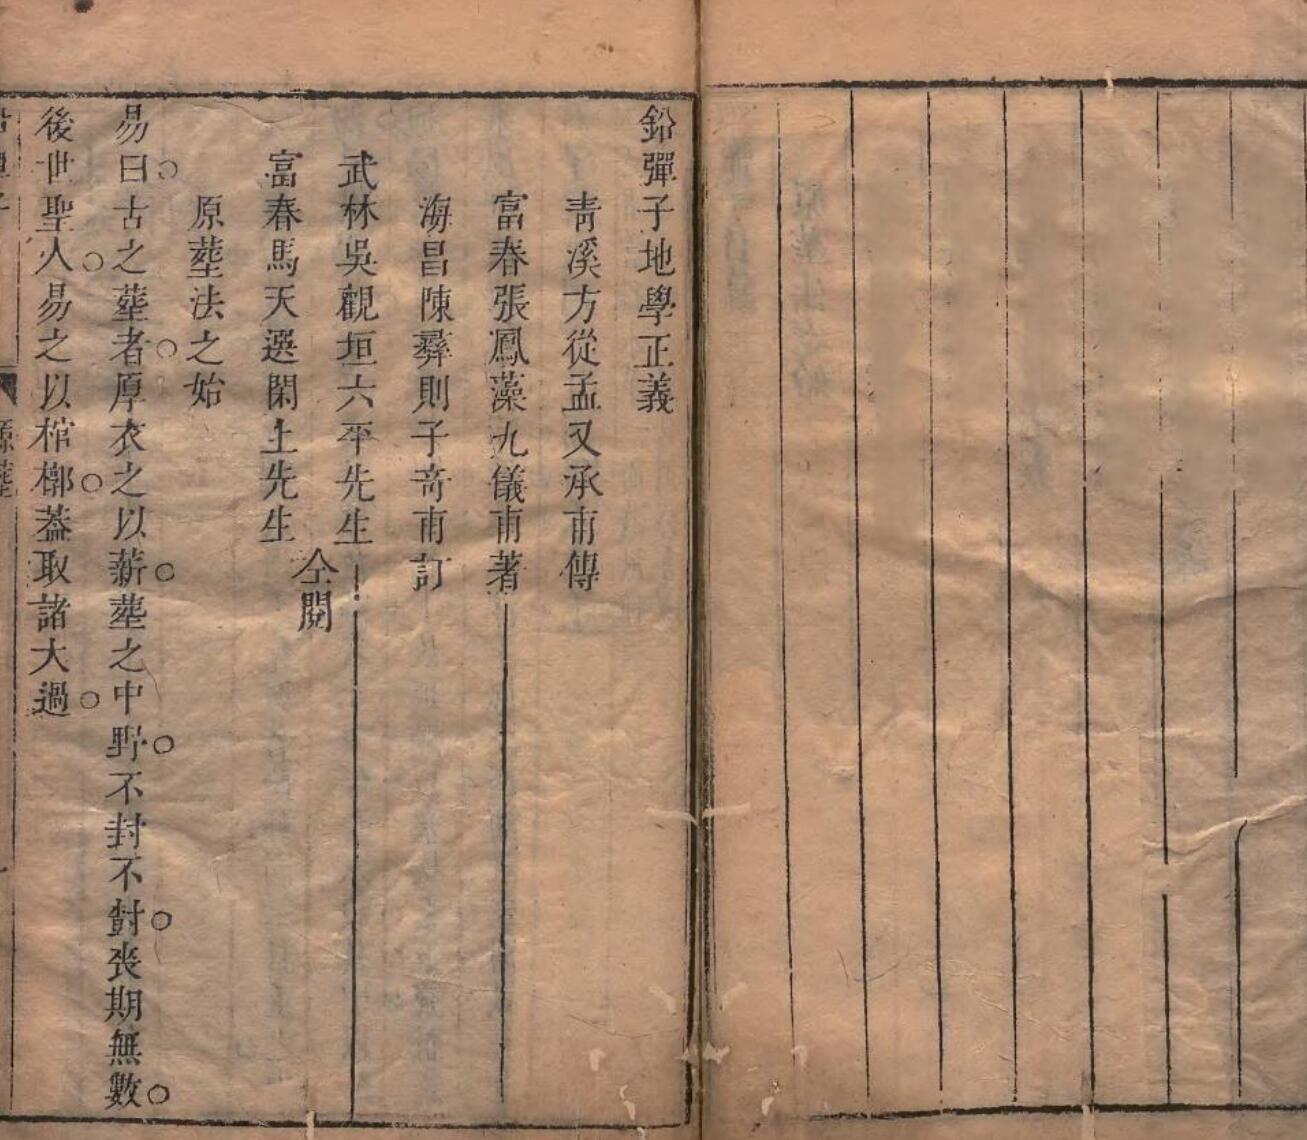 鉛彈子地學正義
青溪方從孟又承甫傳
富春張鳳藻九儀甫著
海昌陳彝則子奇甫訂
武林吳觀垣六平先生
富春馬天選閑上先生
仝閱
原塟法之始
易曰古之塟者厚衣之以薪塟之中野不封不樹喪期無數
後世聖人易之以棺槨葢取諸大過